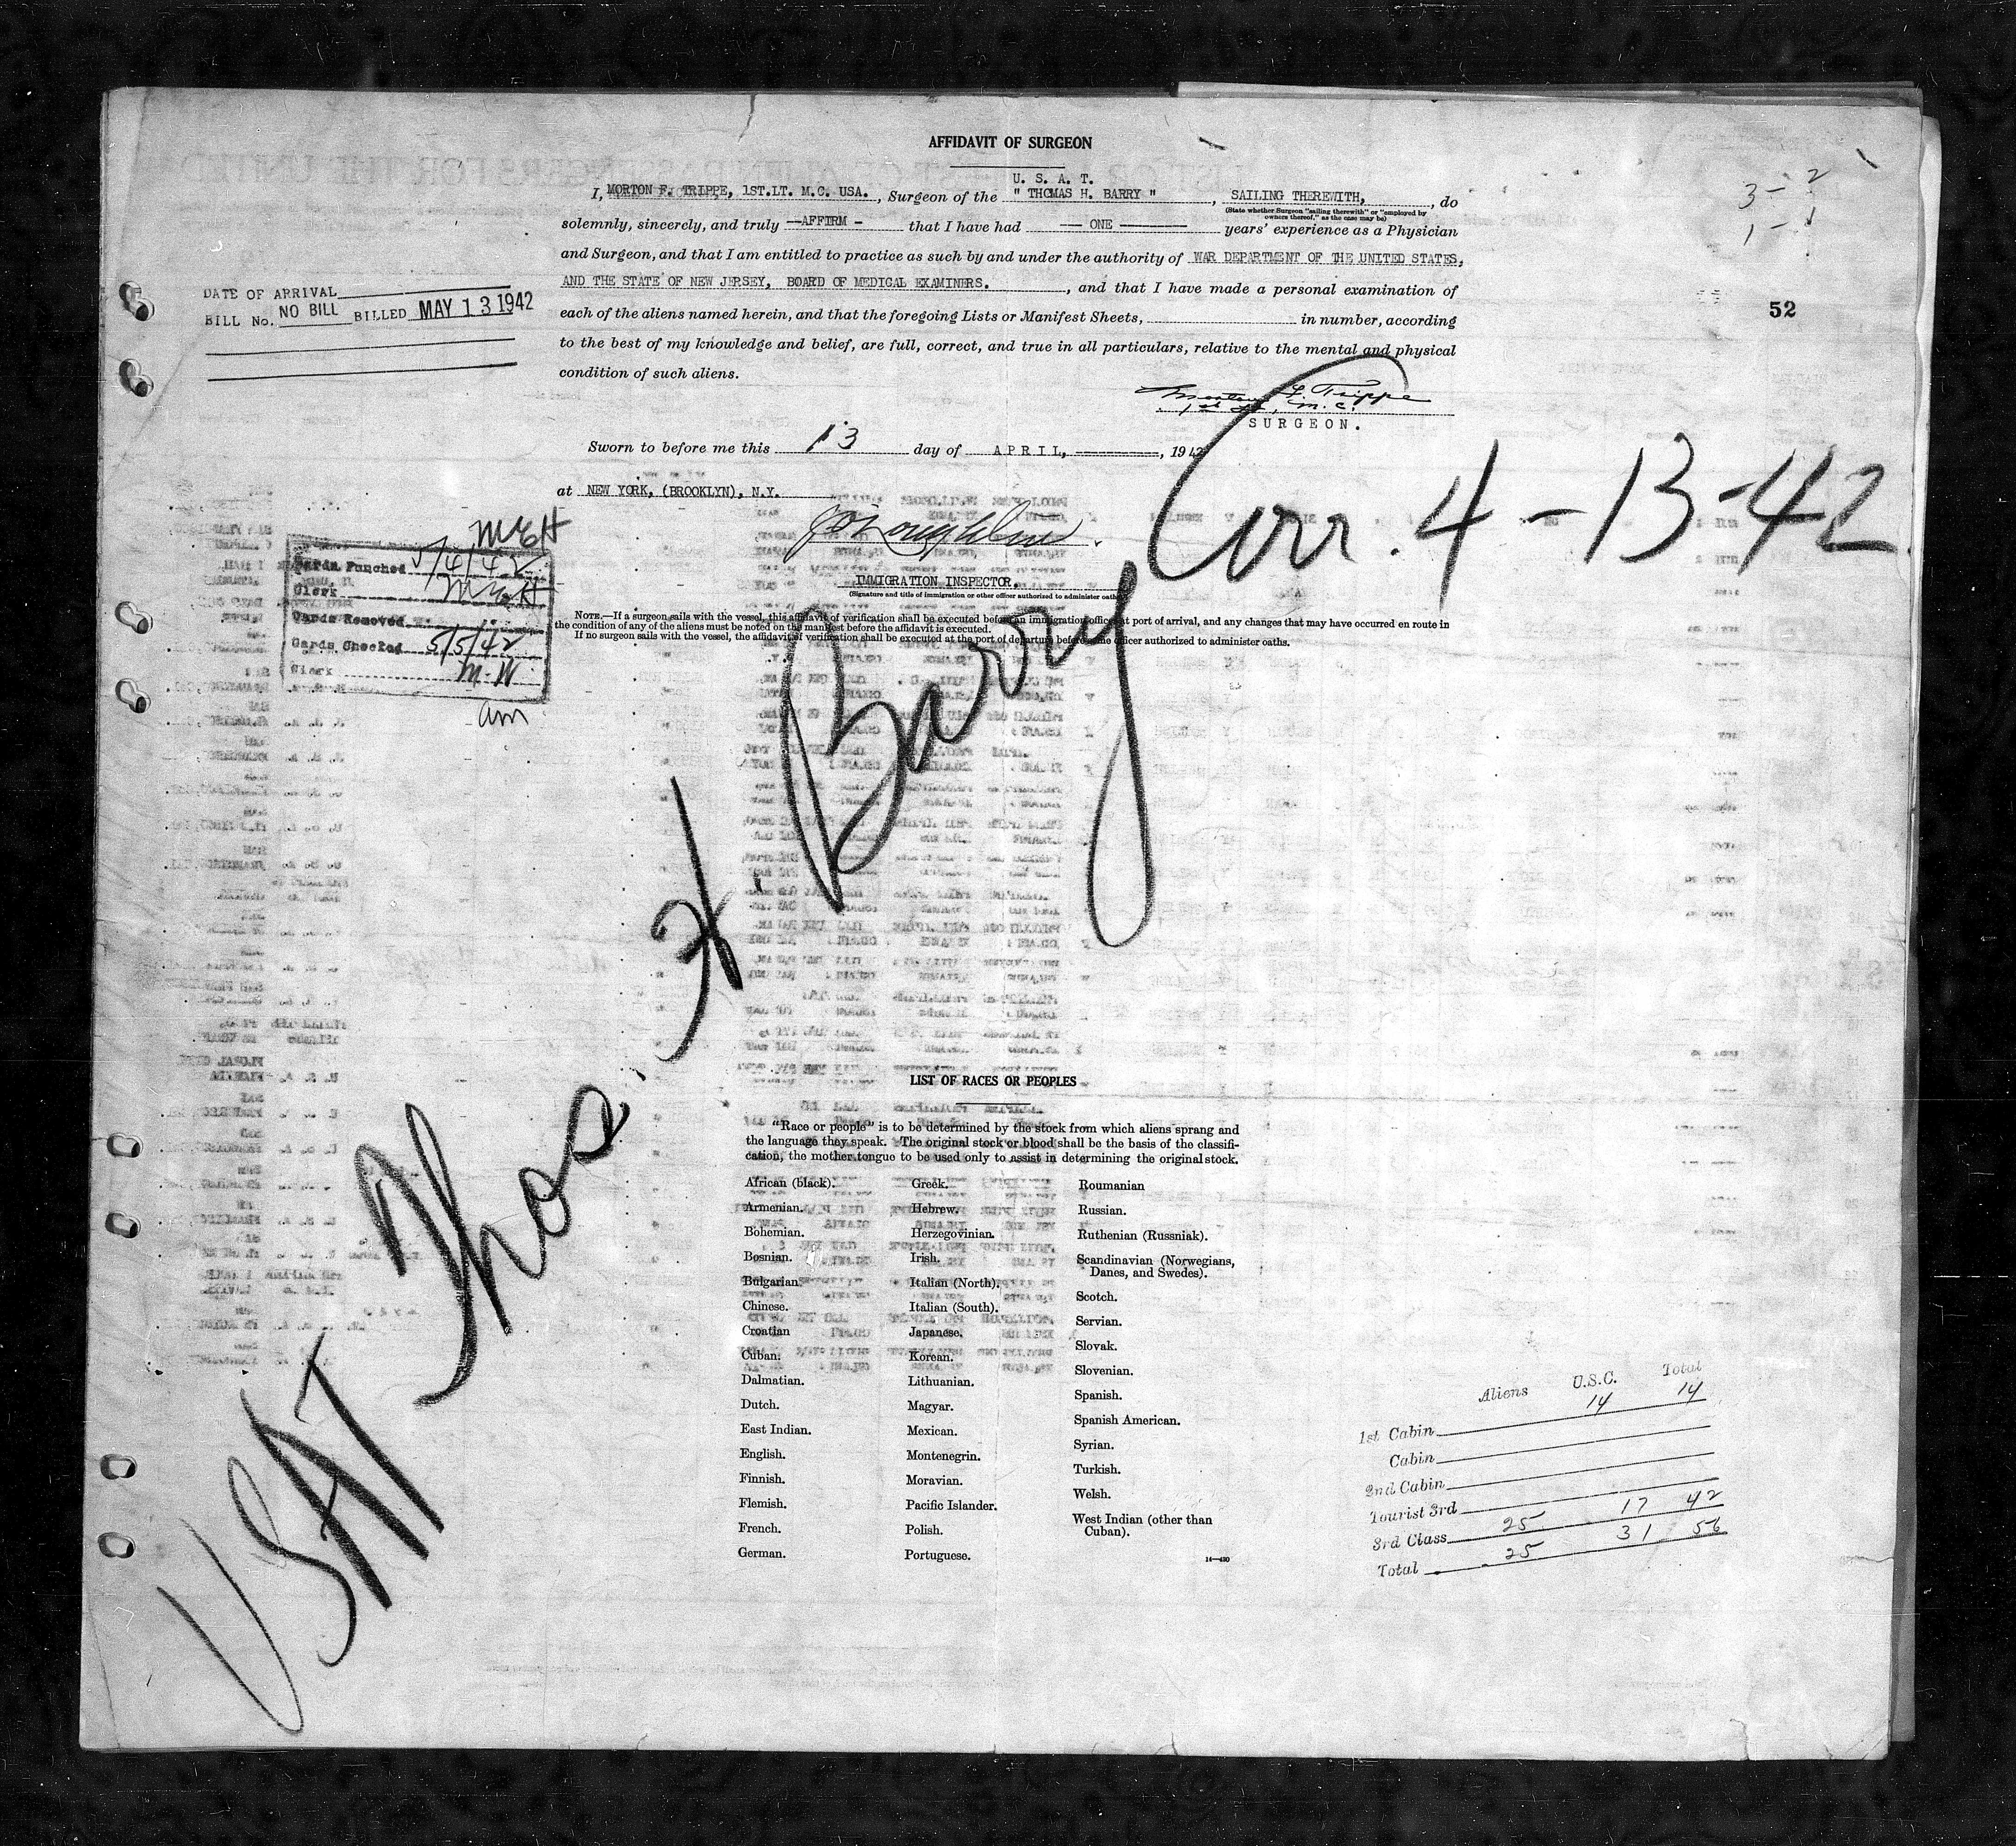 AFFIDAVIT OF SURGEON
U. S. A. T.
I, MORTON F. TRIPPE, 1ST.LT. M.C. USA., Surgeon of the " THOMAS H. BARRY ", SAILING THEREWITH, , do
(State whether Surgeon "sailing therewith" or "employed by
owners thereof," as the case may be)
solemnly, sincerely, and truly —AFFIRM— that I have had — ONE — years' experience as a Physician
and Surgeon, and that I am entitled to practice as such by and under the authority of WAR DEPARTMENT OF THE UNITED STATES,
AND THE STATE OF NEW JERSEY, BOARD OF MEDICAL EXAMINERS. , and that I have made a personal examination of
each of the aliens named herein, and that the foregoing Lists or Manifest Sheets, in number, according
to the best of my knowledge and belief, are full, correct, and true in all particulars, relative to the mental and physical
condition of such aliens.
3 - 2
1 - 1
52
DATE OF ARRIVAL
BILL No. NO BILL BILLED MAY 13 1942
Morton F. Trippe
1st Lt, M.C.
SURGEON.
Sworn to before me this 13 day of APRIL, , 1942
at NEW YORK, (BROOKLYN), N.Y.
Arr. 4-13-42
IMMIGRATION INSPECTOR.
(Signature and title of immigration or other officer authorized to administer oaths)
McH
Cards Punched 5/4/42
Clerk McH
Cards Removed
Cards Checked 5/5/42
Clerk M.W
am
NOTE.—If a surgeon sails with the vessel, this affidavit of verification shall be executed before an immigration officer at port of arrival, and any changes that may have occurred en route in
the condition of any of the aliens must be noted on the manifest before the affidavit is executed.
If no surgeon sails with the vessel, the affidavit of verification shall be executed at the port of departure before some officer authorized to administer oaths.
USAT Thos. H. Barry
LIST OF RACES OR PEOPLES
"Race or people" is to be determined by the stock from which aliens sprang and
the language they speak. The original stock or blood shall be the basis of the classifi-
cation, the mother tongue to be used only to assist in determining the original stock.
African (black).
Armenian.
Bohemian.
Bosnian.
Bulgarian.
Chinese.
Croatian
Cuban.
Dalmatian.
Dutch.
East Indian.
English.
Finnish.
Flemish.
French.
German.
Greek.
Hebrew.
Herzegovinian.
Irish.
Italian (North).
Italian (South).
Japanese.
Korean.
Lithuanian.
Magyar.
Mexican.
Montenegrin.
Moravian.
Pacific Islander.
Polish.
Portuguese.
Roumanian
Russian.
Ruthenian (Russniak).
Scandinavian (Norwegians,
Danes, and Swedes).
Scotch.
Servian.
Slovak.
Slovenian.
Spanish.
Spanish American.
Syrian.
Turkish.
Welsh.
West Indian (other than
Cuban).
14—430
Aliens U.S.C. Total
1st Cabin 14 14
Cabin
2nd Cabin
Tourist 3rd
3rd Class 25 17 42
Total 25 31 56